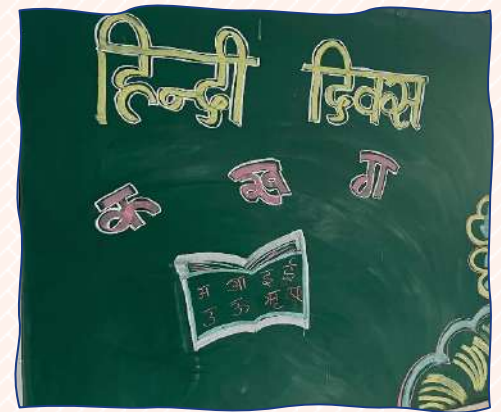 हिन्दी दिवस
क ख ग
अ आ इ ई
उ ऊ ऋ ए